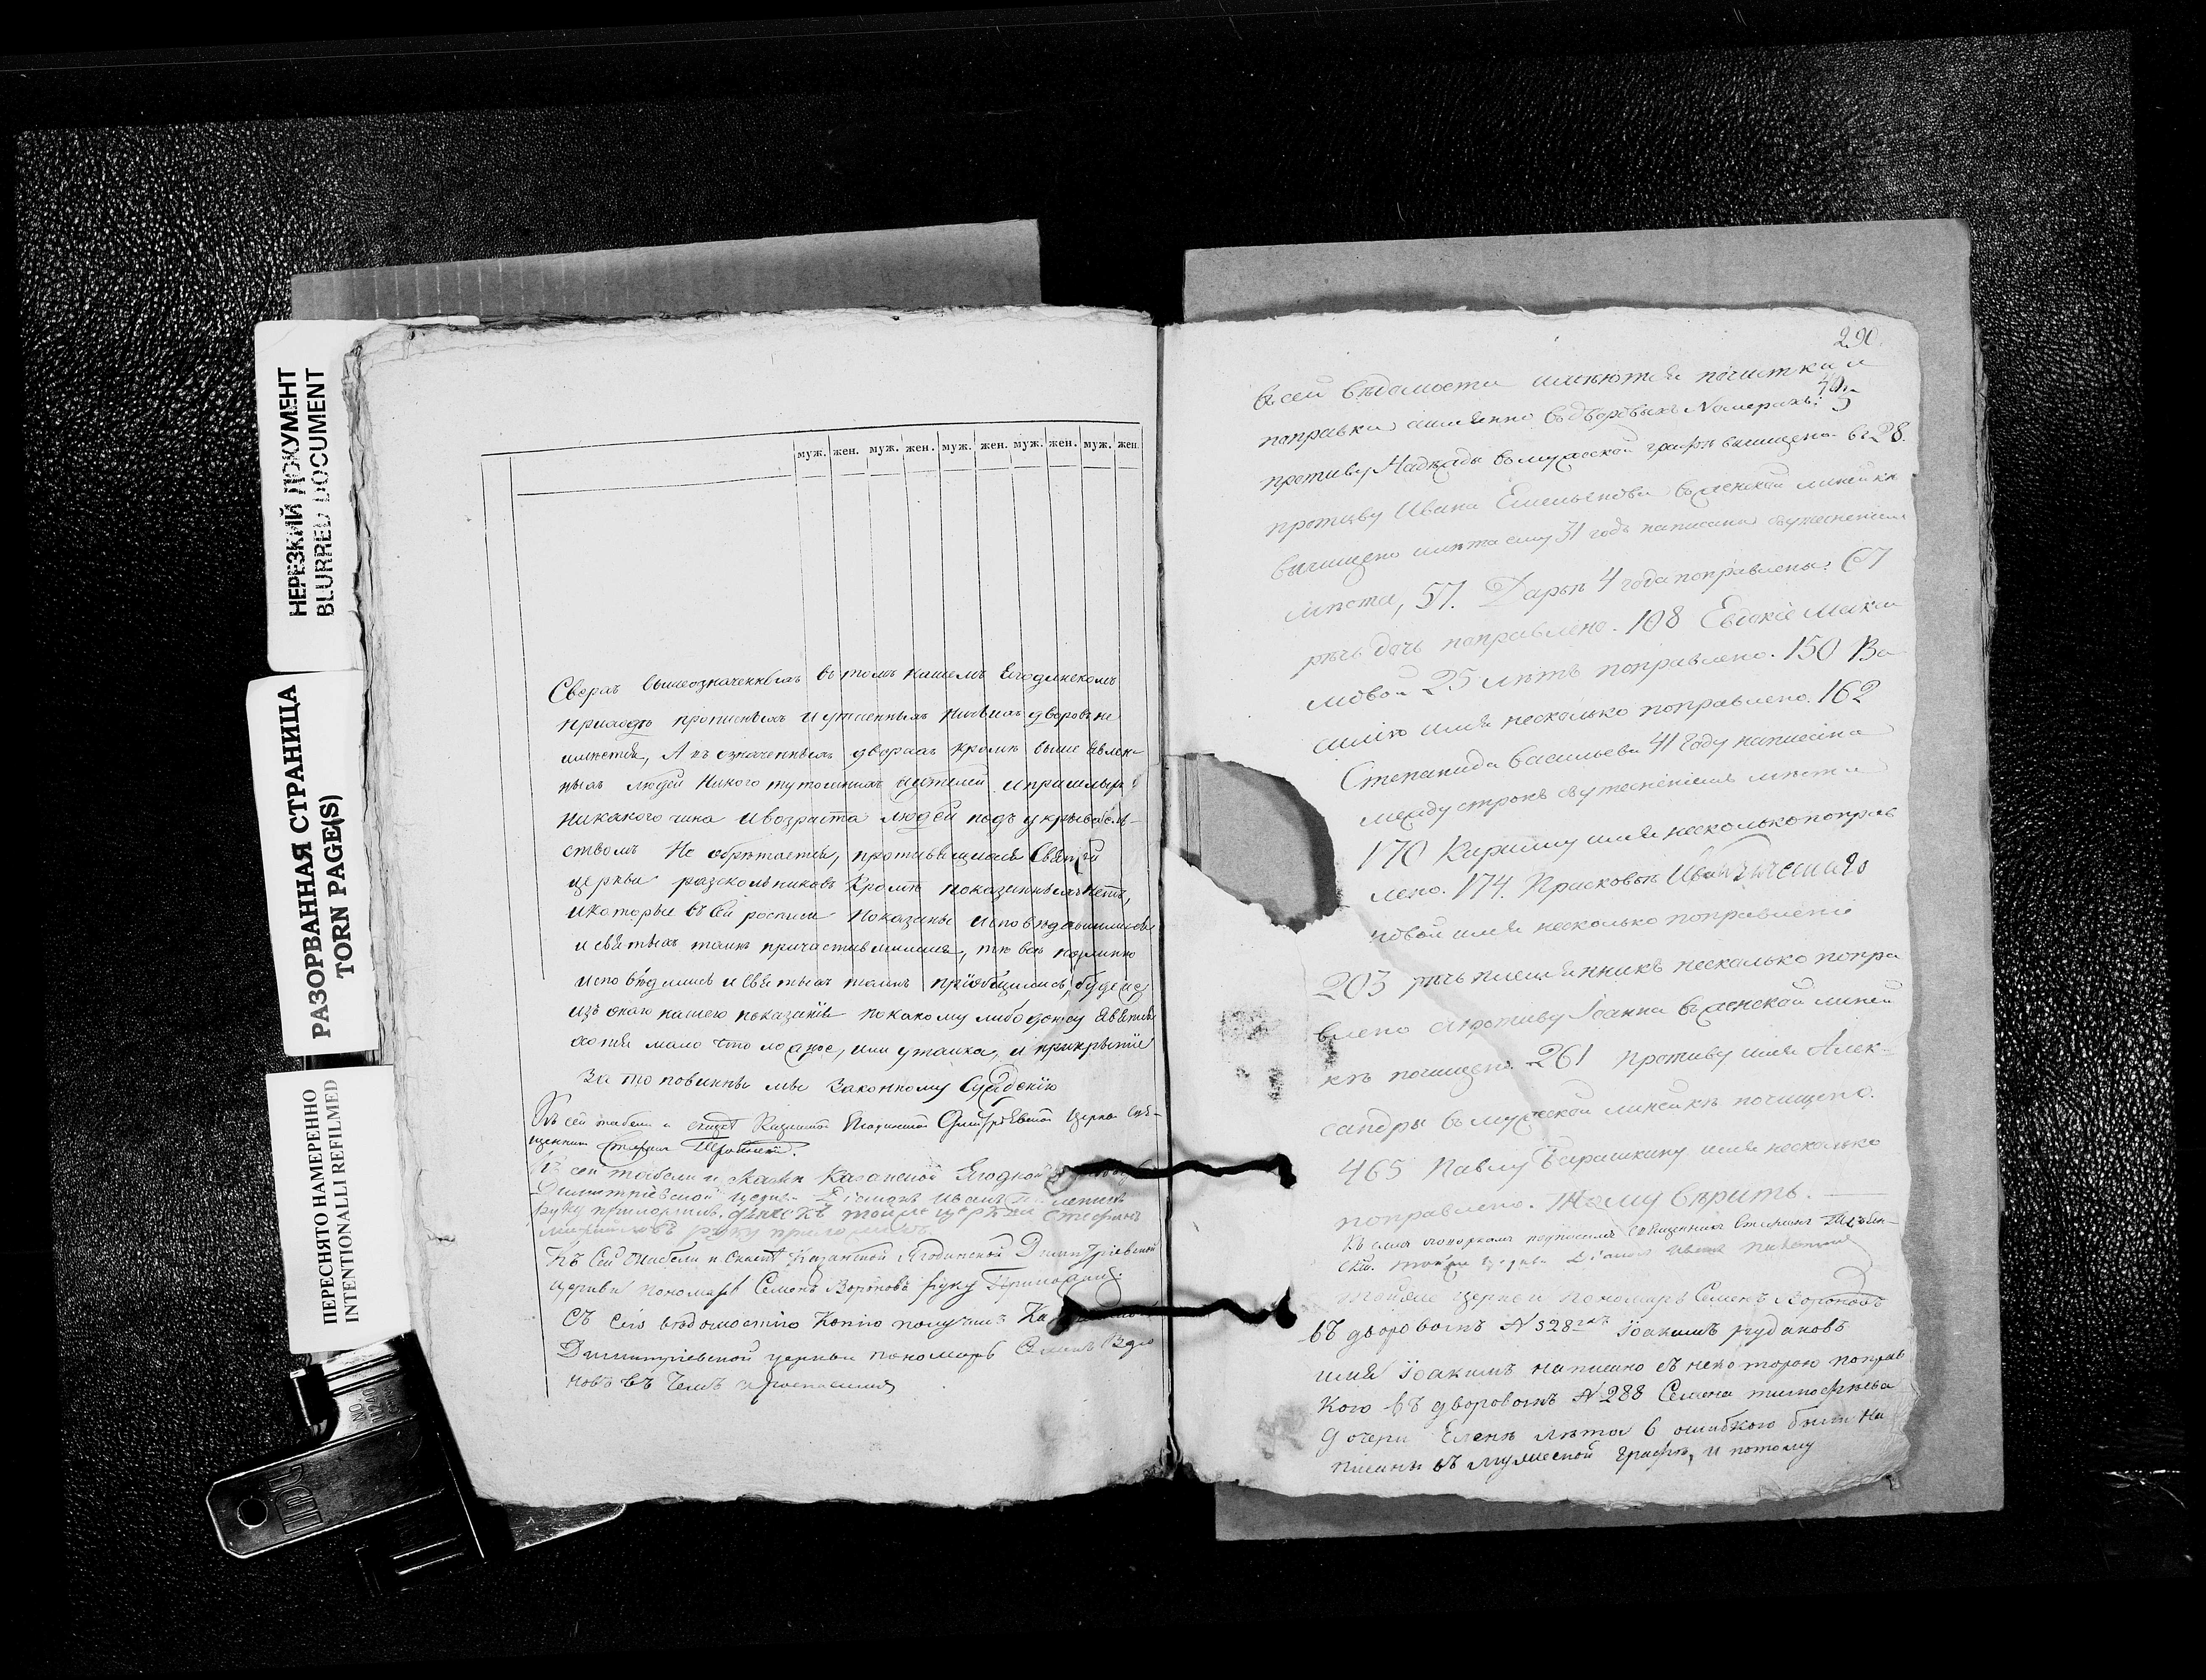 НЕРЕЗКИЙ ДОКУМЕНТ
BLURRED DOCUMENT
РАЗОРВАННАЯ СТРАНИЦА
TORN PAGE(S)
ПЕРЕСНЯТО НАМЕРЕННО
INTENTIONALLI REFILMED
муж. жен. муж. жен. муж. жен. муж. жен. муж. жен.
Сверхъ вышеозначенныхъ въ томъ нашемъ Ягодинскомъ
приходѣ прописныхъ и утаенныхъ никакихъ дворовъ не
имѣется, А въ означенныхъ дворахъ кромѣ выше явлен-
ныхъ людей никого тутошнихъ жителей и пришлыхъ
никакого чина и возраста людей подъ укрыватель-
ствомъ Не обрѣтается, противящихся Святѣй
церкви раскольниковъ Кромѣ показанныхъ нетъ,
и которые въ сей росписи показаны исповѣдавшимися
и святыхъ таинъ причастившимися, тѣ всѣ подлинно
исповѣдались и святыхъ таинъ пріобщились, буде же
изъ онаго нашего показанія по какому либо доносу явится
хотя мало что ложное, или утайка, и прикрытие
За то повинны мы Законному Сужденію
Къ сей табели и сказкѣ Казанской Ягодинской Димитріевской Церкви Свя-
щенникъ Стефанъ
Къ сей табели и сказкѣ Казанской Ягодной
Димитріевской церкви Діаконъ Иванъ
руку приложилъ. дьячекъ тойже церкви Стефанъ
руку приложилъ
Къ Сей табели и Сказкѣ Казанской Ягодинской Димитріевской
церкви пономарь Семенъ Вороновъ руку Приложилъ
Съ Сею вѣдомостію Копію получилъ
Димитріевской церкви пономарь Семенъ Воро
новъ въ чемъ и росписался
290.
въ сей вѣдомости имеются почистки и
поправки а имянно въ дворовыхъ Номерахъ: 5
противу Надежды въ мужеской графѣ вычищено въ 28.
противу Ивана Емельянова въ женской линейкѣ
вычищено лѣта ему 31 годъ написаны съ утеснениемъ
места, 57. Дарьѣ 4 года поправлены. 67
рѣчь дочь поправлено. 108 Евдокіе Макси
мовой 25 лѣтъ поправлено. 150 Ва
силію имя несколько поправлено. 162
Степанида Васильева 41 году написана
между строкъ съ утеснениемъ места
170 имя несколько поправ
лено. 174. Прасковьѣ
новой имя несколько поправлено
203 рѣчь племянникъ несколько попра
влено а противу Іоанна въ женской линей
кѣ почищено. 261 противу имя Алек-
сандры въ мужеской линейкѣ почищено.
465 Павлу Барашкину имя несколько
поправлено. Тому вѣрить.
Къ симъ оговоркамъ подписался Священникъ Стефанъ
тойже церкви Діаконъ Иванъ
тойже церкви пономарь Семенъ Вороновъ
въ дворовомъ № 328 Іоакимъ Рудаковъ
имя Іоакимъ написано съ некоторою поправ
кою въ дворовомъ № 288 Семена тимофѣева
дочери Еленѣ лѣта 6 ошибкою были на
писаны въ мужеской графѣ, и потому